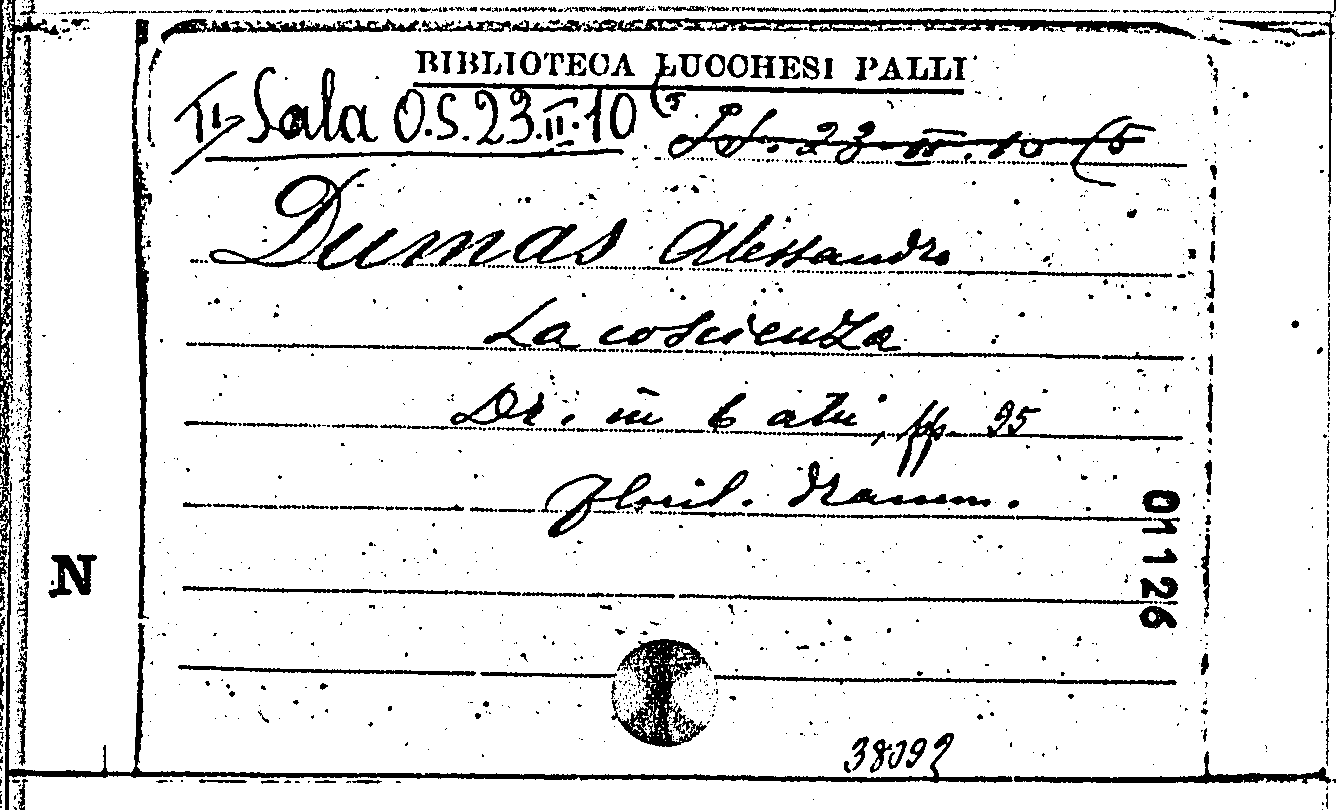 BIBLIOTECA LUCCHESI PALLI
II Sala O.S. 23.II.10(5 S.S. 23-II.10(5
Dumas Alessandro
La coscienza
Dr. in 6 atti, pp. 95
Floril. dramm.
01126
N
38092